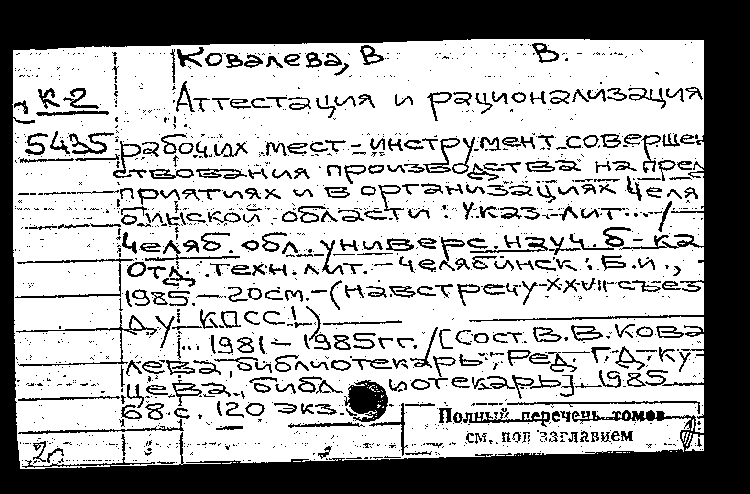 Ковалева, В В.
К-2
Аттестация и рационализация
5435
рабочих мест-инструмент совершен
ствования производства на пред
приятиях и в организациях Челя
бинской области: Указ. лит... /
Челяб. обл. универс. науч. б-ка
Отд. техн. лит. - Челябинск: Б.и.,
1985. - 20см. - (Навстречу XXVII съез
ду КПСС!)
... 1981-1985гг. /[Сост. В.В. Кова
лева, библиотекарь; Ред. Г.Д. Ку-
щева, библиотекарь]. 1985
68 с. 120 экз.
Полный перечень томов
см. под заглавием
20